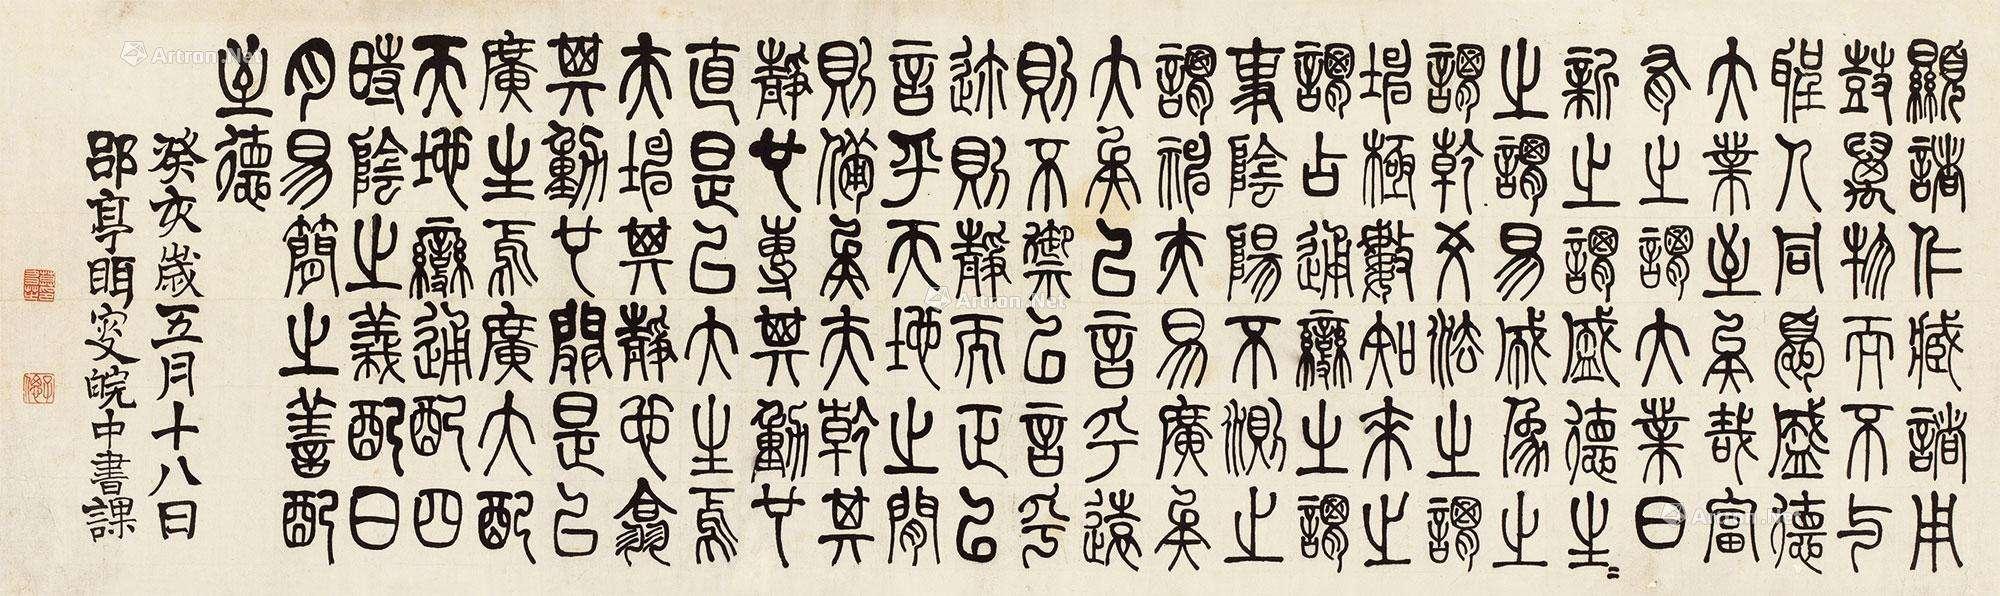 顯諸仁臧諸用
鼓萬物而不与
聖人同憂盛德
大業至矣哉富
有之謂大業日
新之謂盛德生〻
之謂易成像之
謂乾爻法之謂
坤極數知來之
謂占通變之謂
事陰陽不測之
謂神夫易廣矣
大矣以言乎遠
則不禦以言乎
迩則靜而正以
言乎天地之間
則備矣夫乾其
靜也專其動也
直是以大生焉
夫坤其靜也翕
其動也闢是以
廣生焉廣大配
天地變通配四
時陰之義配日
月易簡之善配
至德
癸亥歲五月十八日
郘亭眲叟皖中書課
子偲
Artron.Net
Artron.Net
Artron.Net
Artron.Net